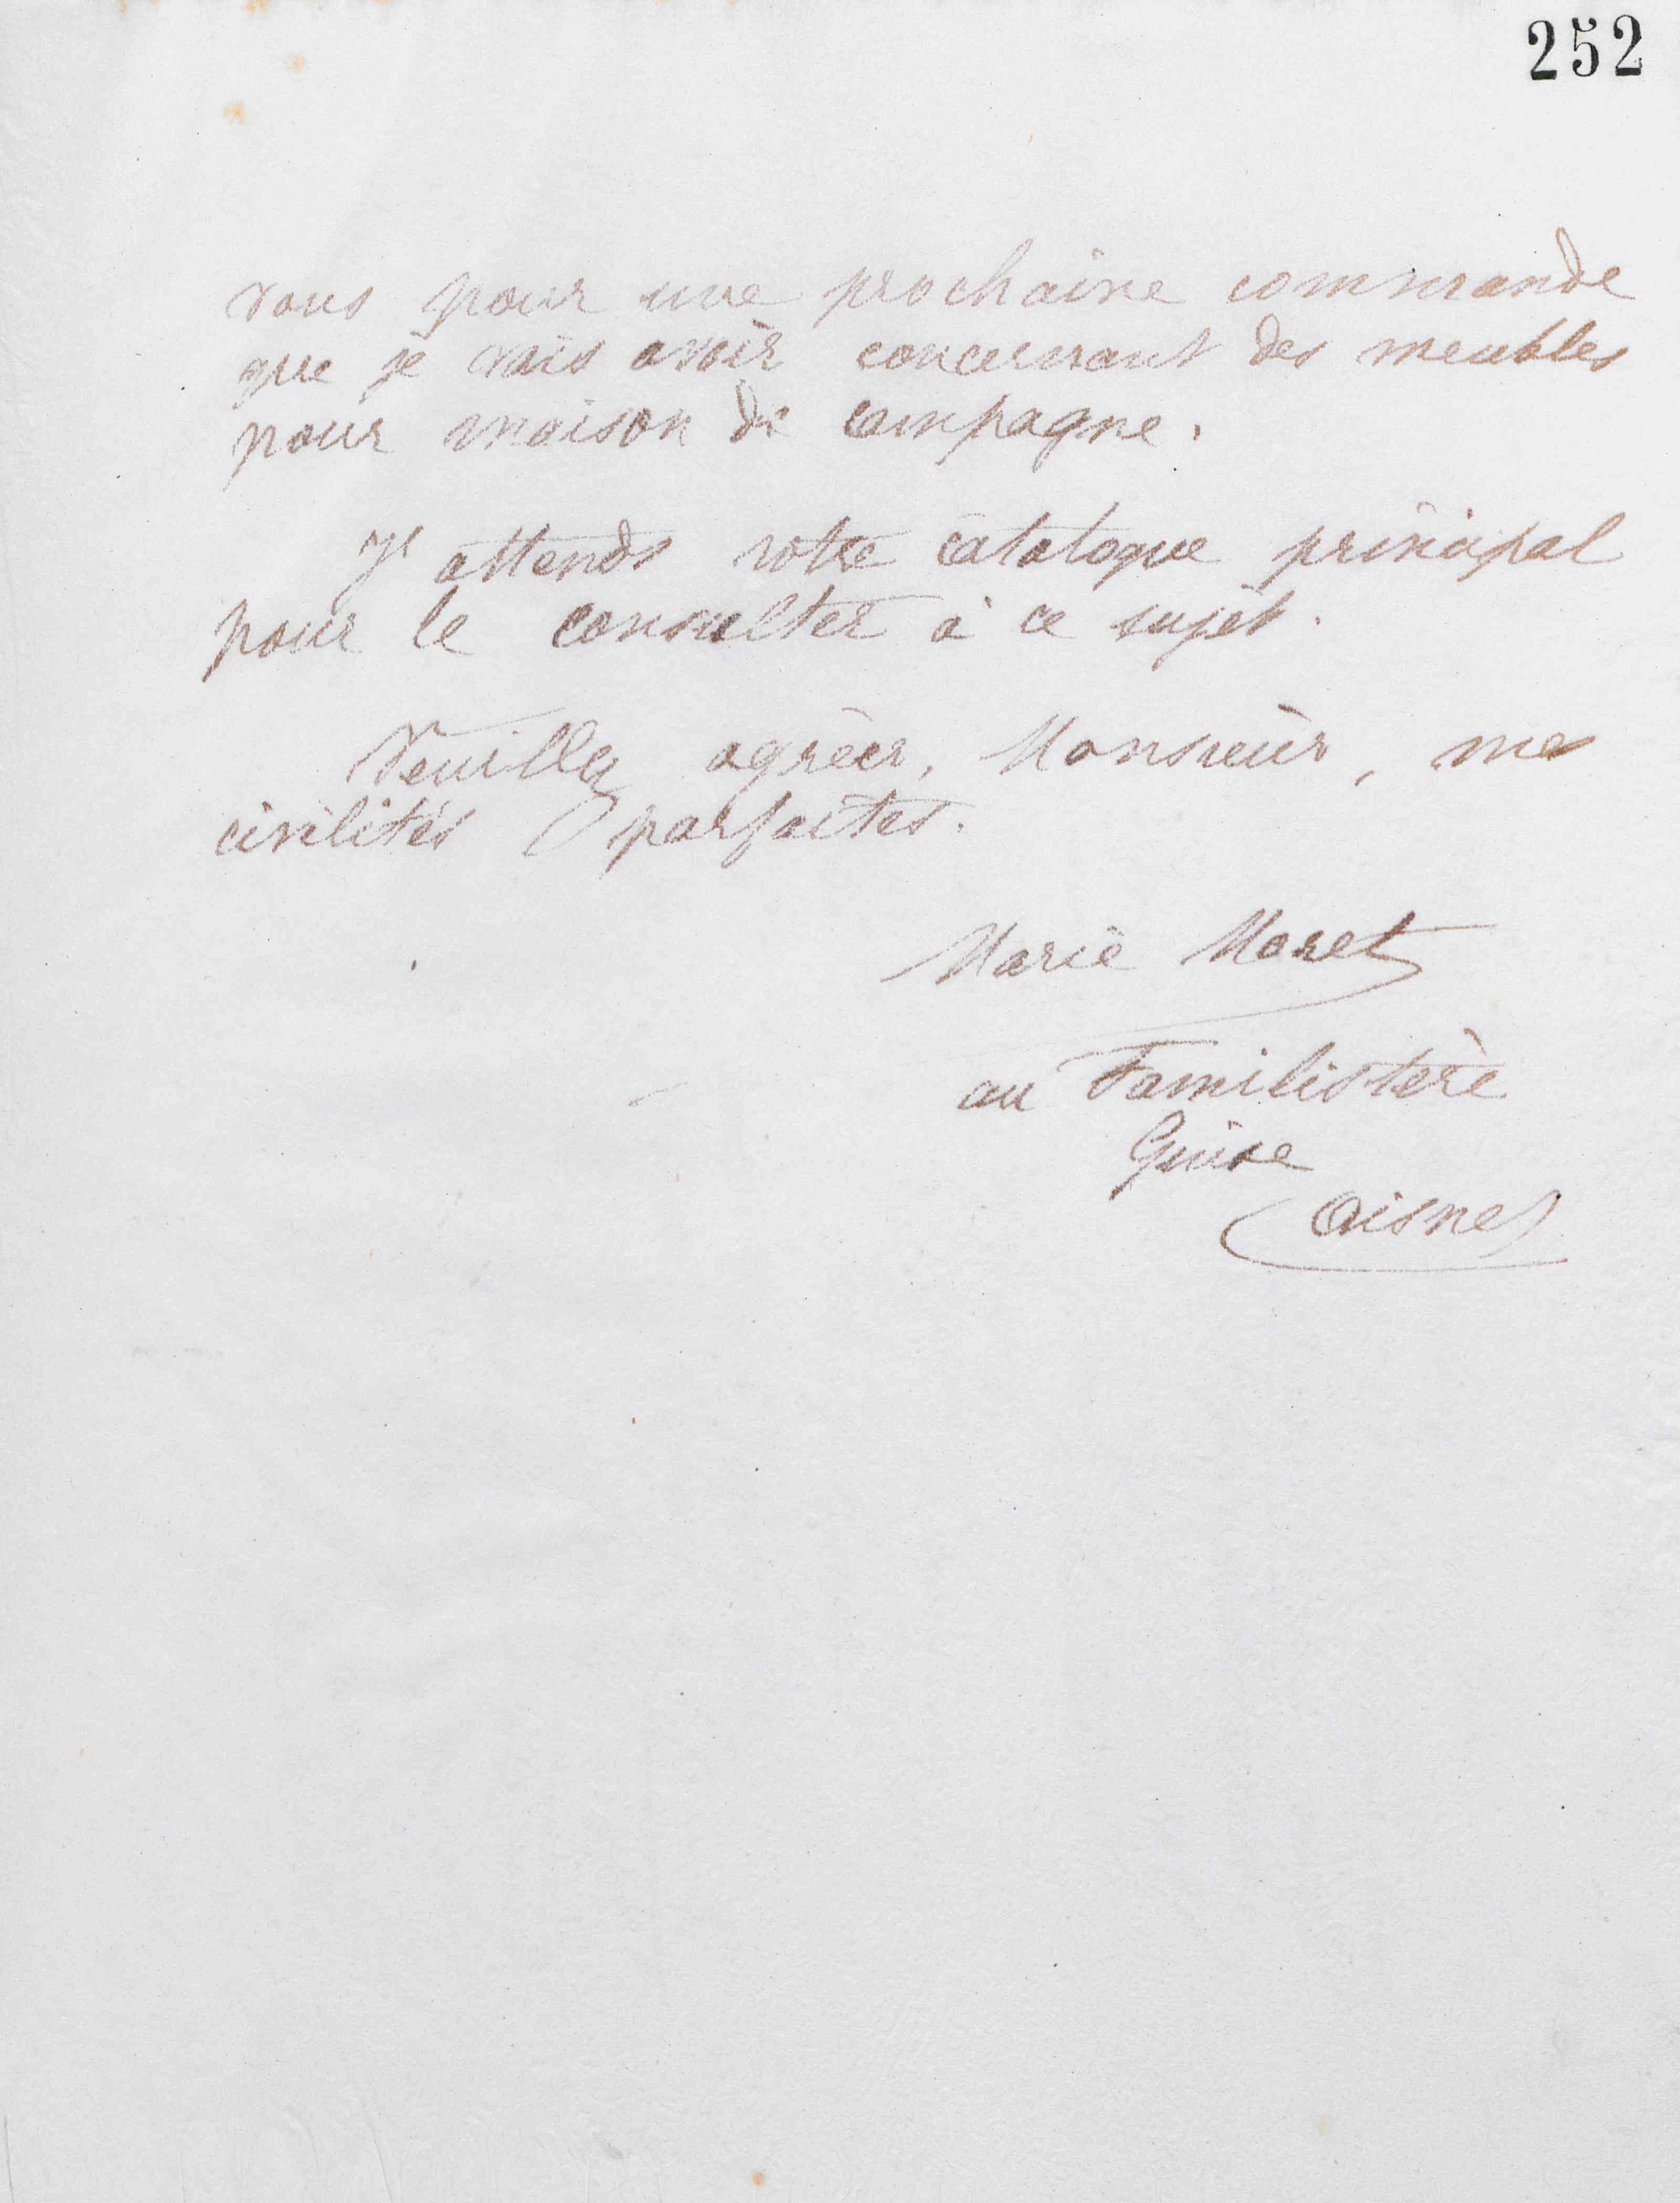 252
vous pour une prochaine commande
que je vais avoir concernant des meubles
pour maison de campagne.
J'attends votre catalogue principal
pour le consulter à ce sujet.
Veuillez agréer, Monsieur, mes
civilités parfaites.
Marie Moret
au Familistère
Guise
(Aisne)